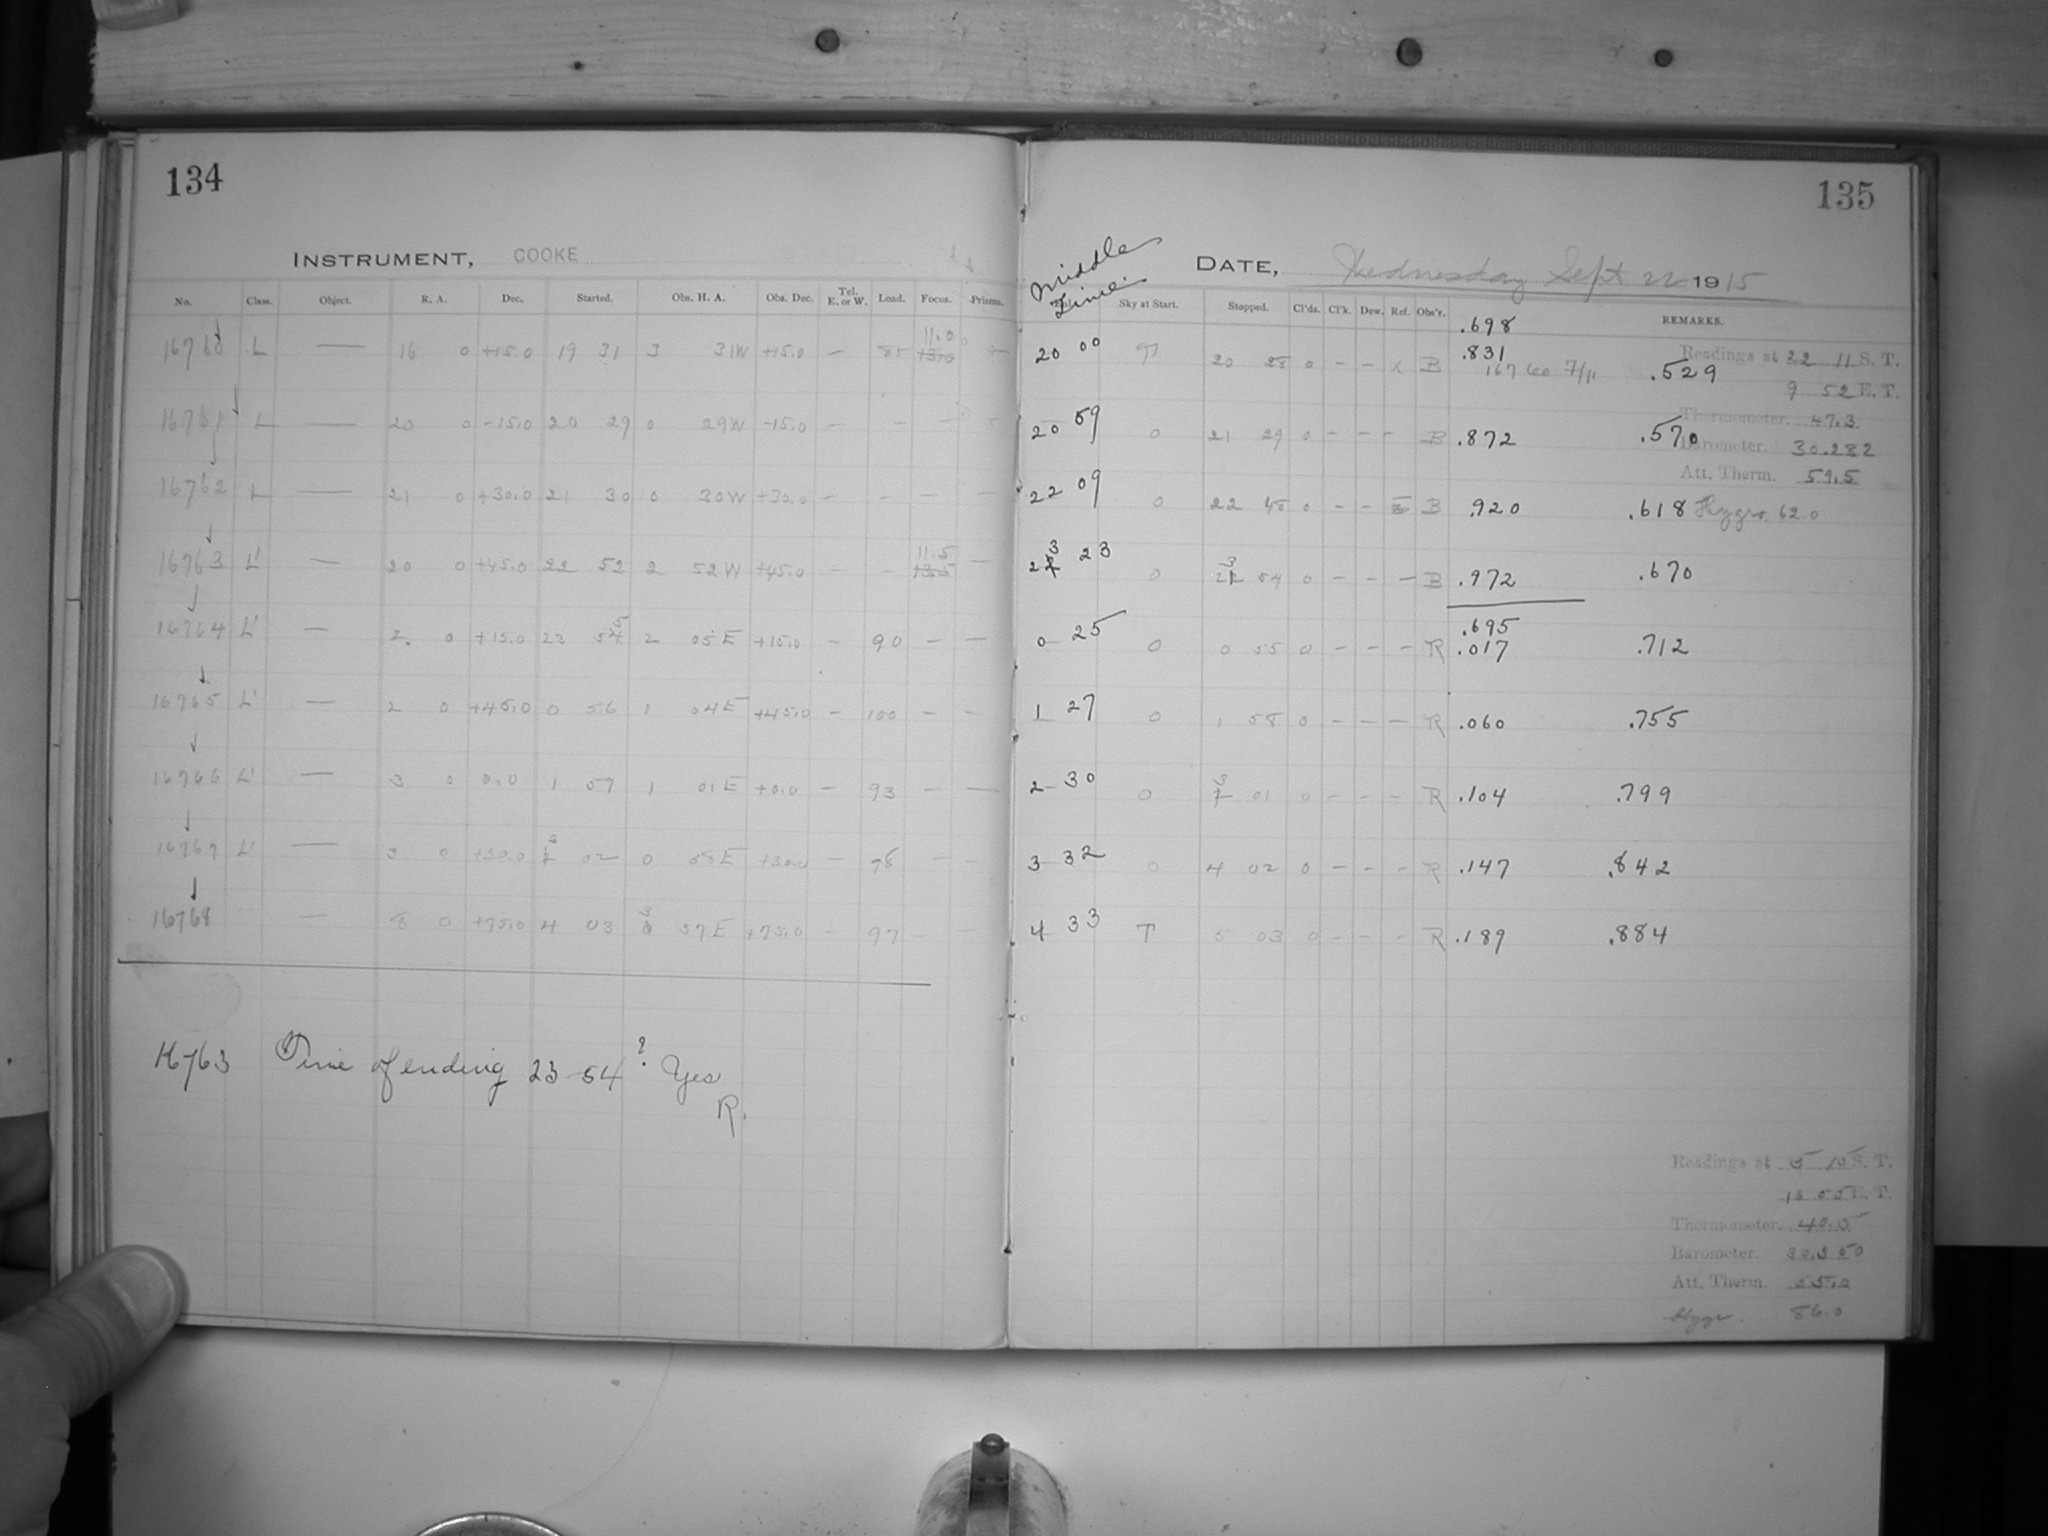 134
INSTRUMENT, COOKE
No. Class. Object. R. A. Dec. Started. Obs. H. A. Obs. Dec. Tel. E. or W. Load. Focus. Prisms.
16760 L — 16 0 +15.0 19 31 3 31W +15.0 — 85 11.0
16761 L — 20 0 -15.0 20 29 0 29W -15.0 — - -
16762 L — 21 0 +30.0 21 30 0 30W +30.0 - - - -
16763 L' — 20 0 +45.0 22 52 2 52W +45.0 - - 11.5 -
16764 L' — 2 0 +15.0 23 55 2 05E +15.0 - 90 - -
16765 L' — 2 0 +45.0 0 56 1 04E +45.0 - 100 - -
16766 L' — 3 0 0.0 1 59 1 01E +0.0 - 93 - —
16767 L' — 3 0 +30.0 3 02 0 58E +30.0 - 98 - -
16768 — 8 0 +75.0 4 03 3 57E +75.0 - 97 - -
16763 Time of ending 23-54? Yes
R.
135
DATE, Wednesday Sept 22 1915
Middle Time. Sky at Start. Stopped. Cl'ds. Cl'k. Dew. Ref. Obs'r. REMARKS.
.698
20 00 T 20 28 0 - - x B .831 .529
16760 7/11
20 59 0 21 29 0 - - - B .872 .570
22 09 0 22 48 0 - - B .920 .618 Hygro. 62.0
23 23 0 23 54 0 - - - B .972 .670
.695
0 25 0 0 55 0 - - - R .017 .712
1 27 0 1 58 0 - - - R .060 .755
2 30 0 3 01 0 - - - R .104 .799
3 32 0 4 02 0 - - - R .147 .842
4 33 T 5 03 0 - - - R .189 .884
Readings at 22 11 S. T.
9 52 E. T.
Thermometer. 47.3
Barometer. 30.282
Att. Therm. 59.5
Readings at 5 15 S. T.
16 55 E. T.
Thermometer. 40.5
Barometer. 30.350
Att. Therm. 55.0
Hygr. 86.0